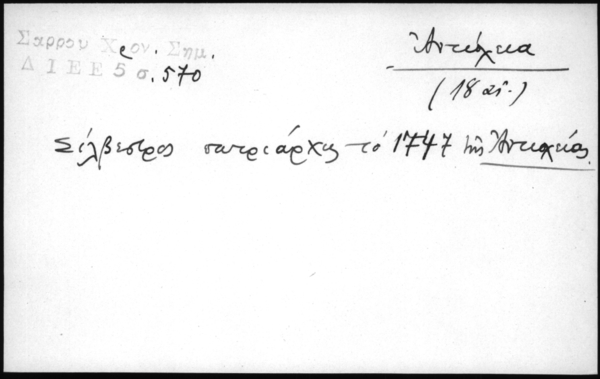 Σαρρου Χρον. Σημ.
Δ Ι Ε Ε 5 σ. 570
Ἀντιόχεια
(18 αἰ.)
Σίλβεστρος πατριάρχης τό 1747 τῆς Ἀντιοχείας.